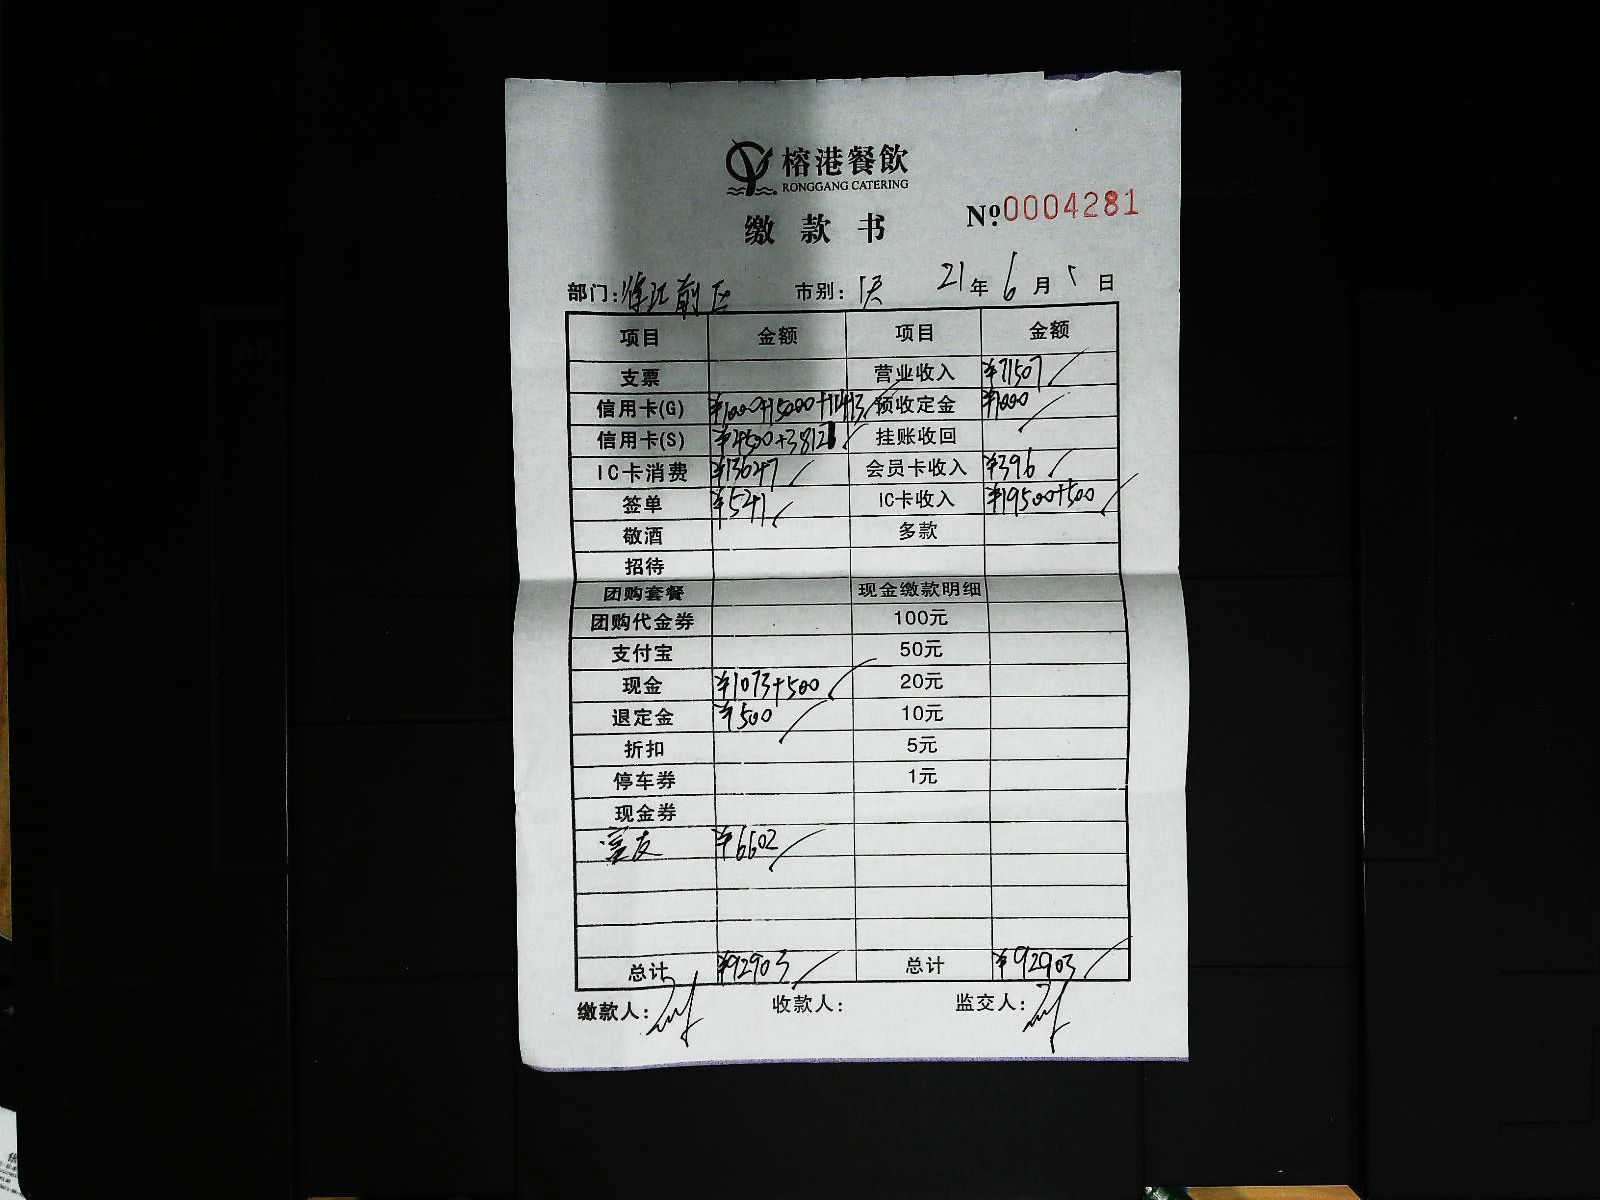 榕港餐飲
RONGGANG CATERING
缴款书
№0004281
部门: 前区 市别: 21年6月 日
项目 金额 项目 金额
支票 营业收入 ¥71507
信用卡(G) ¥1000+15000+11413 预收定金 ¥1000
信用卡(S) ¥4500+38127 挂账收回
IC卡消费 ¥13647 会员卡收入 ¥396
签单 ¥541 IC卡收入 ¥19500+500
敬酒 多款
招待
团购套餐 现金缴款明细
团购代金券 100元
支付宝 50元
现金 ¥1073+500 20元
退定金 ¥500 10元
折扣 5元
停车券 1元
现金券
¥6602
总计 ¥92903 总计 ¥92903
缴款人: 收款人: 监交人: